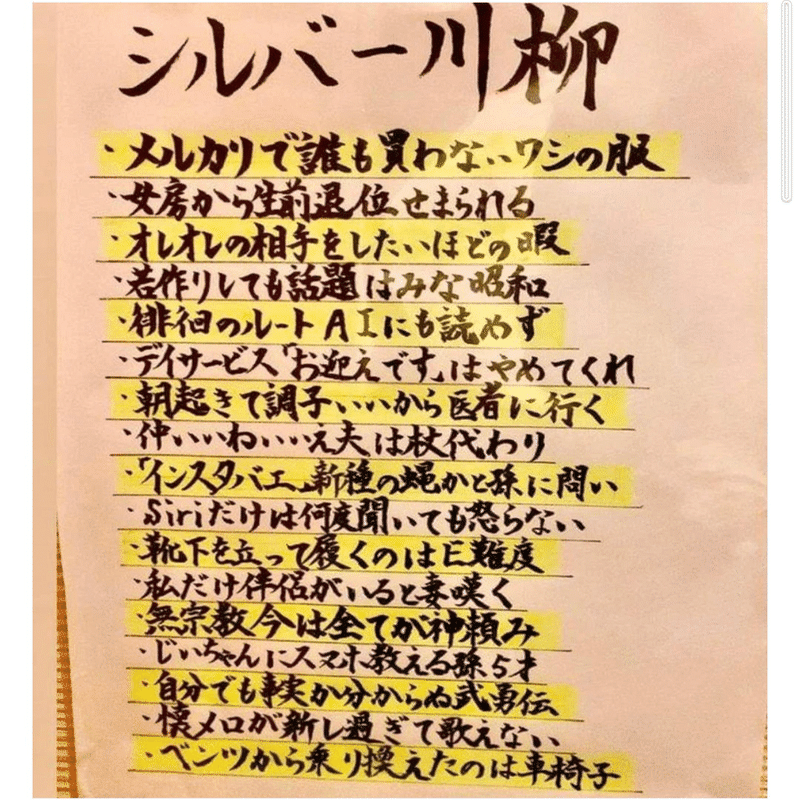 シルバー川柳
・メルカリで誰も買わないワシの服
・女房から生前退位せまられる
・オレオレの相手をしたいほどの暇
・若作りしても話題はみな昭和
・徘徊のルートAIにも読めず
・デイサービス「お迎えです」はやめてくれ
・朝起きて調子いいから医者に行く
・仲いいわいいえ夫は杖代わり
・「インスタバエ」新種の蝿かと孫に問い
・Siriだけは何度聞いても怒らない
・靴下を立って履くのはE難度
・私だけ伴侶がいると妻咲く
・無宗教今は全てが神頼み
・じいちゃんにスマホ教える孫5才
・自分でも事実か分からぬ武勇伝
・懐メロが新し過ぎて歌えない
・ベンツから乗り換えたのは車椅子